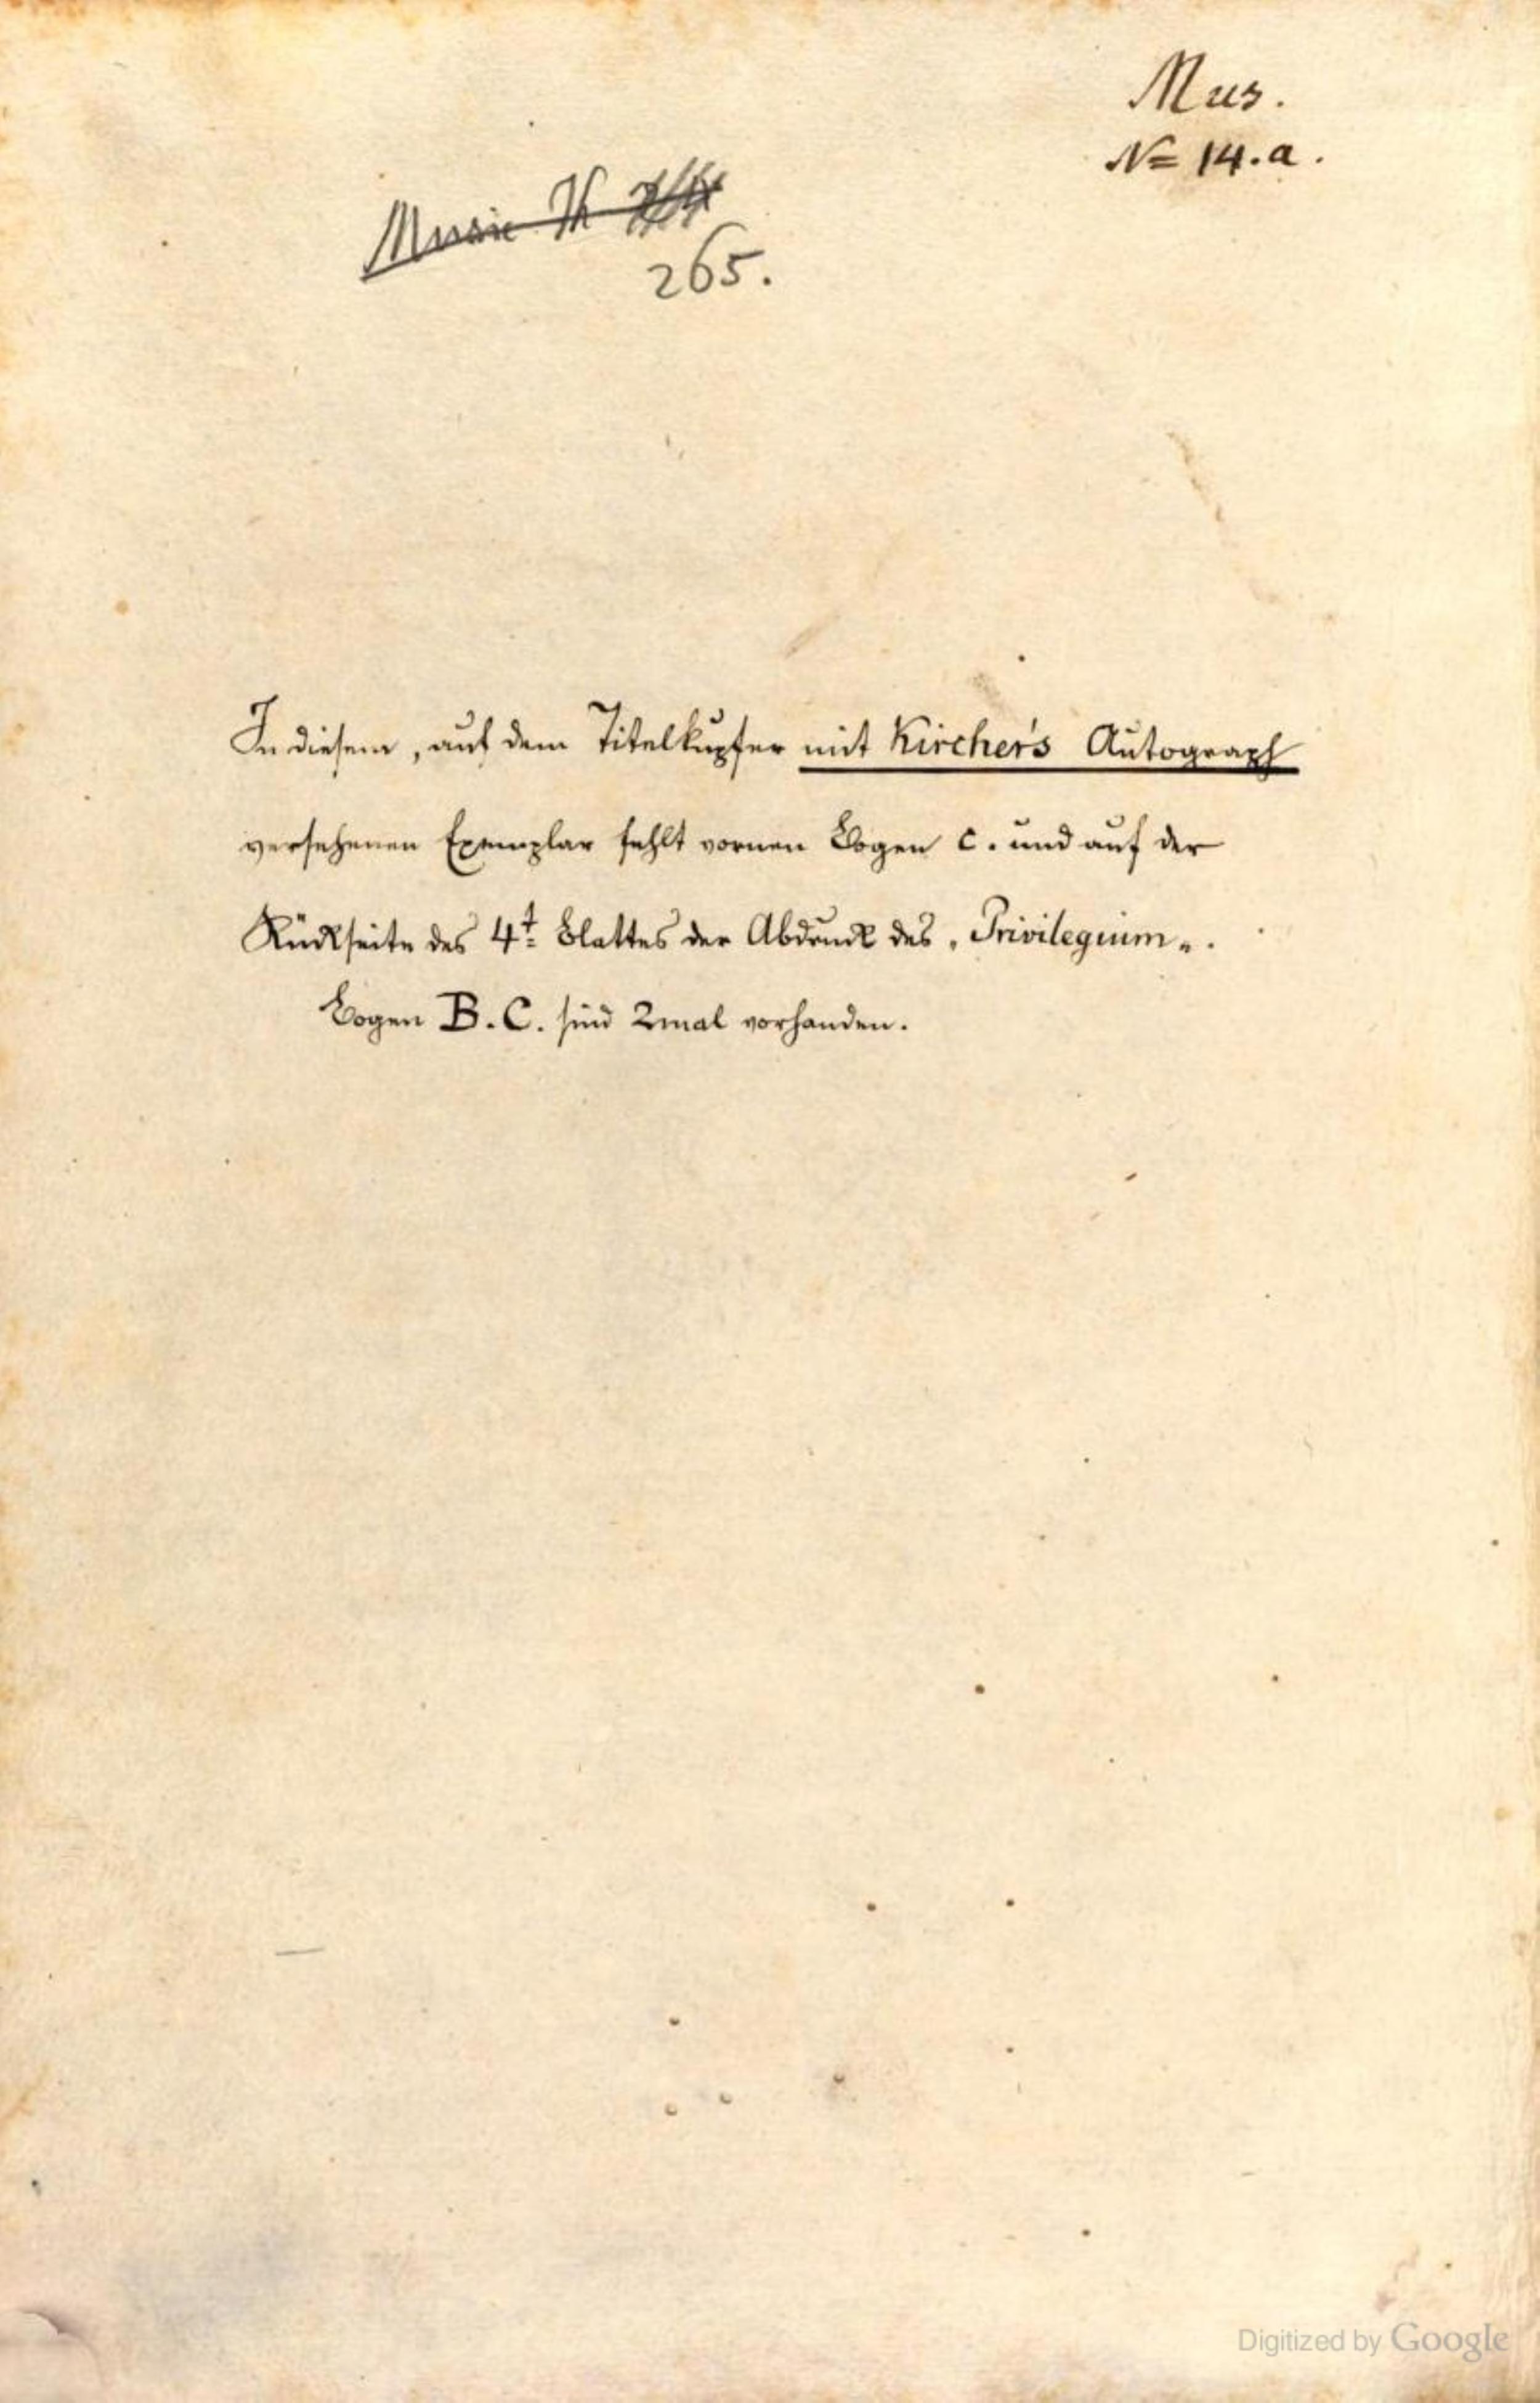 Mus.
N= 14.a.
Music Th
265.
In diesem, auf dem Titelkupfer mit Kircher's Autograph
versehenen Exemplar fehlt vornen Bogen c. und auf der
Rückseite des 4t= Blattes der Abdruck des „Privilegium„.
Bogen B. C. sind 2mal vorhanden.
Digitized by Google